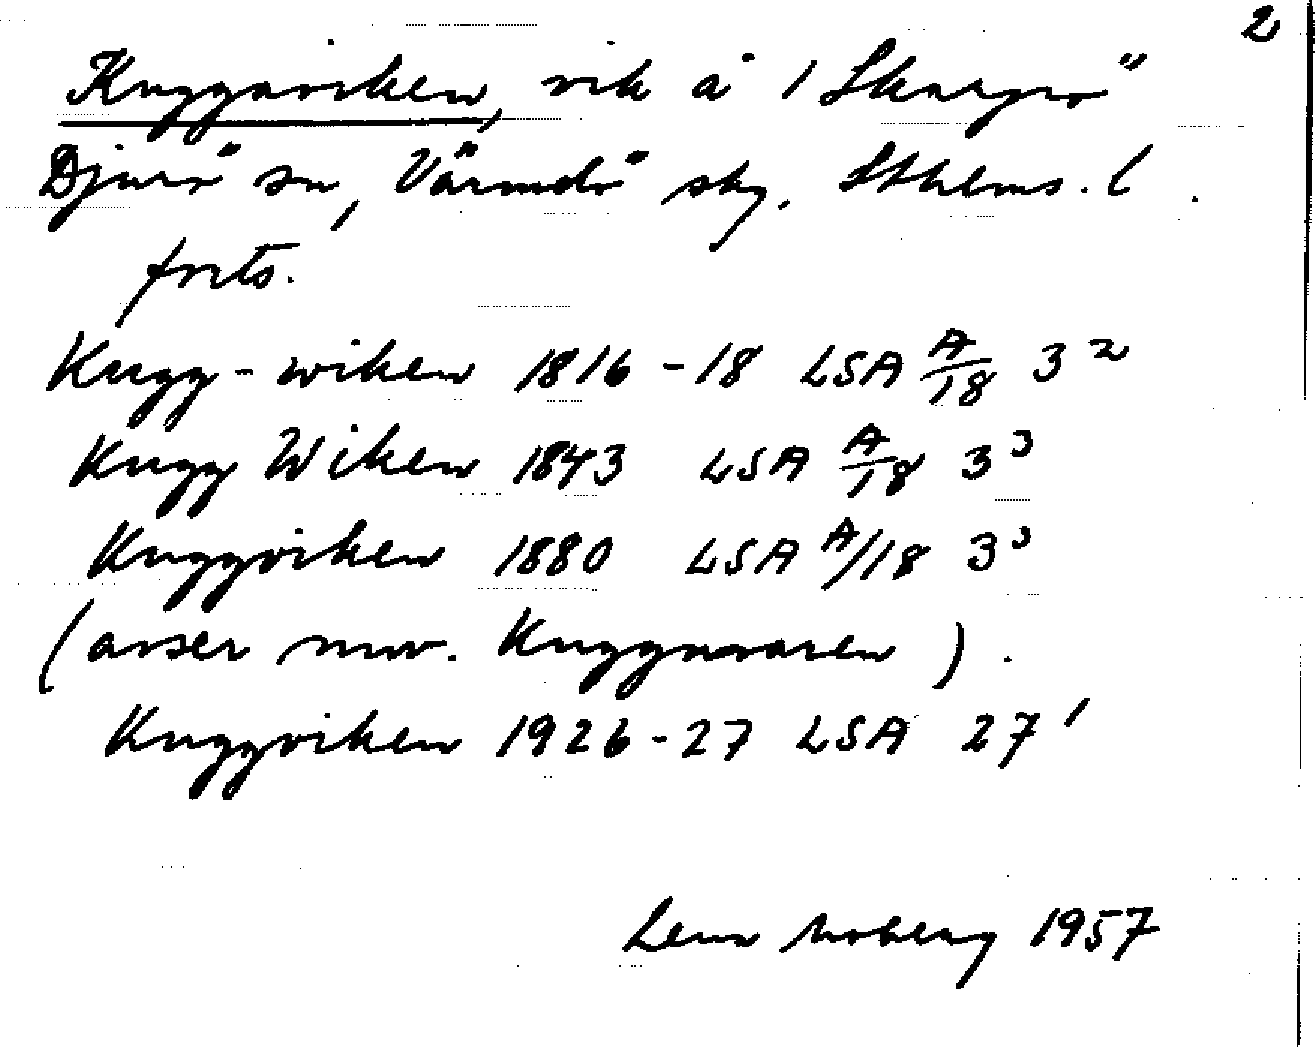 2
Kuggaviken, vik å / Skarpö
Djurö sn, Värmdö skg. Sthlms. l.
forts.
Kugg-wiken 1816-18 LSA A/18 3²
Kugg Wiken 1843 LSA A/18 3³
Kuggviken 1880 LSA A/18 3³
(avser nuv. Kuggmaren).
Kuggviken 1926-27 LSA 27¹
Lena Moberg 1957